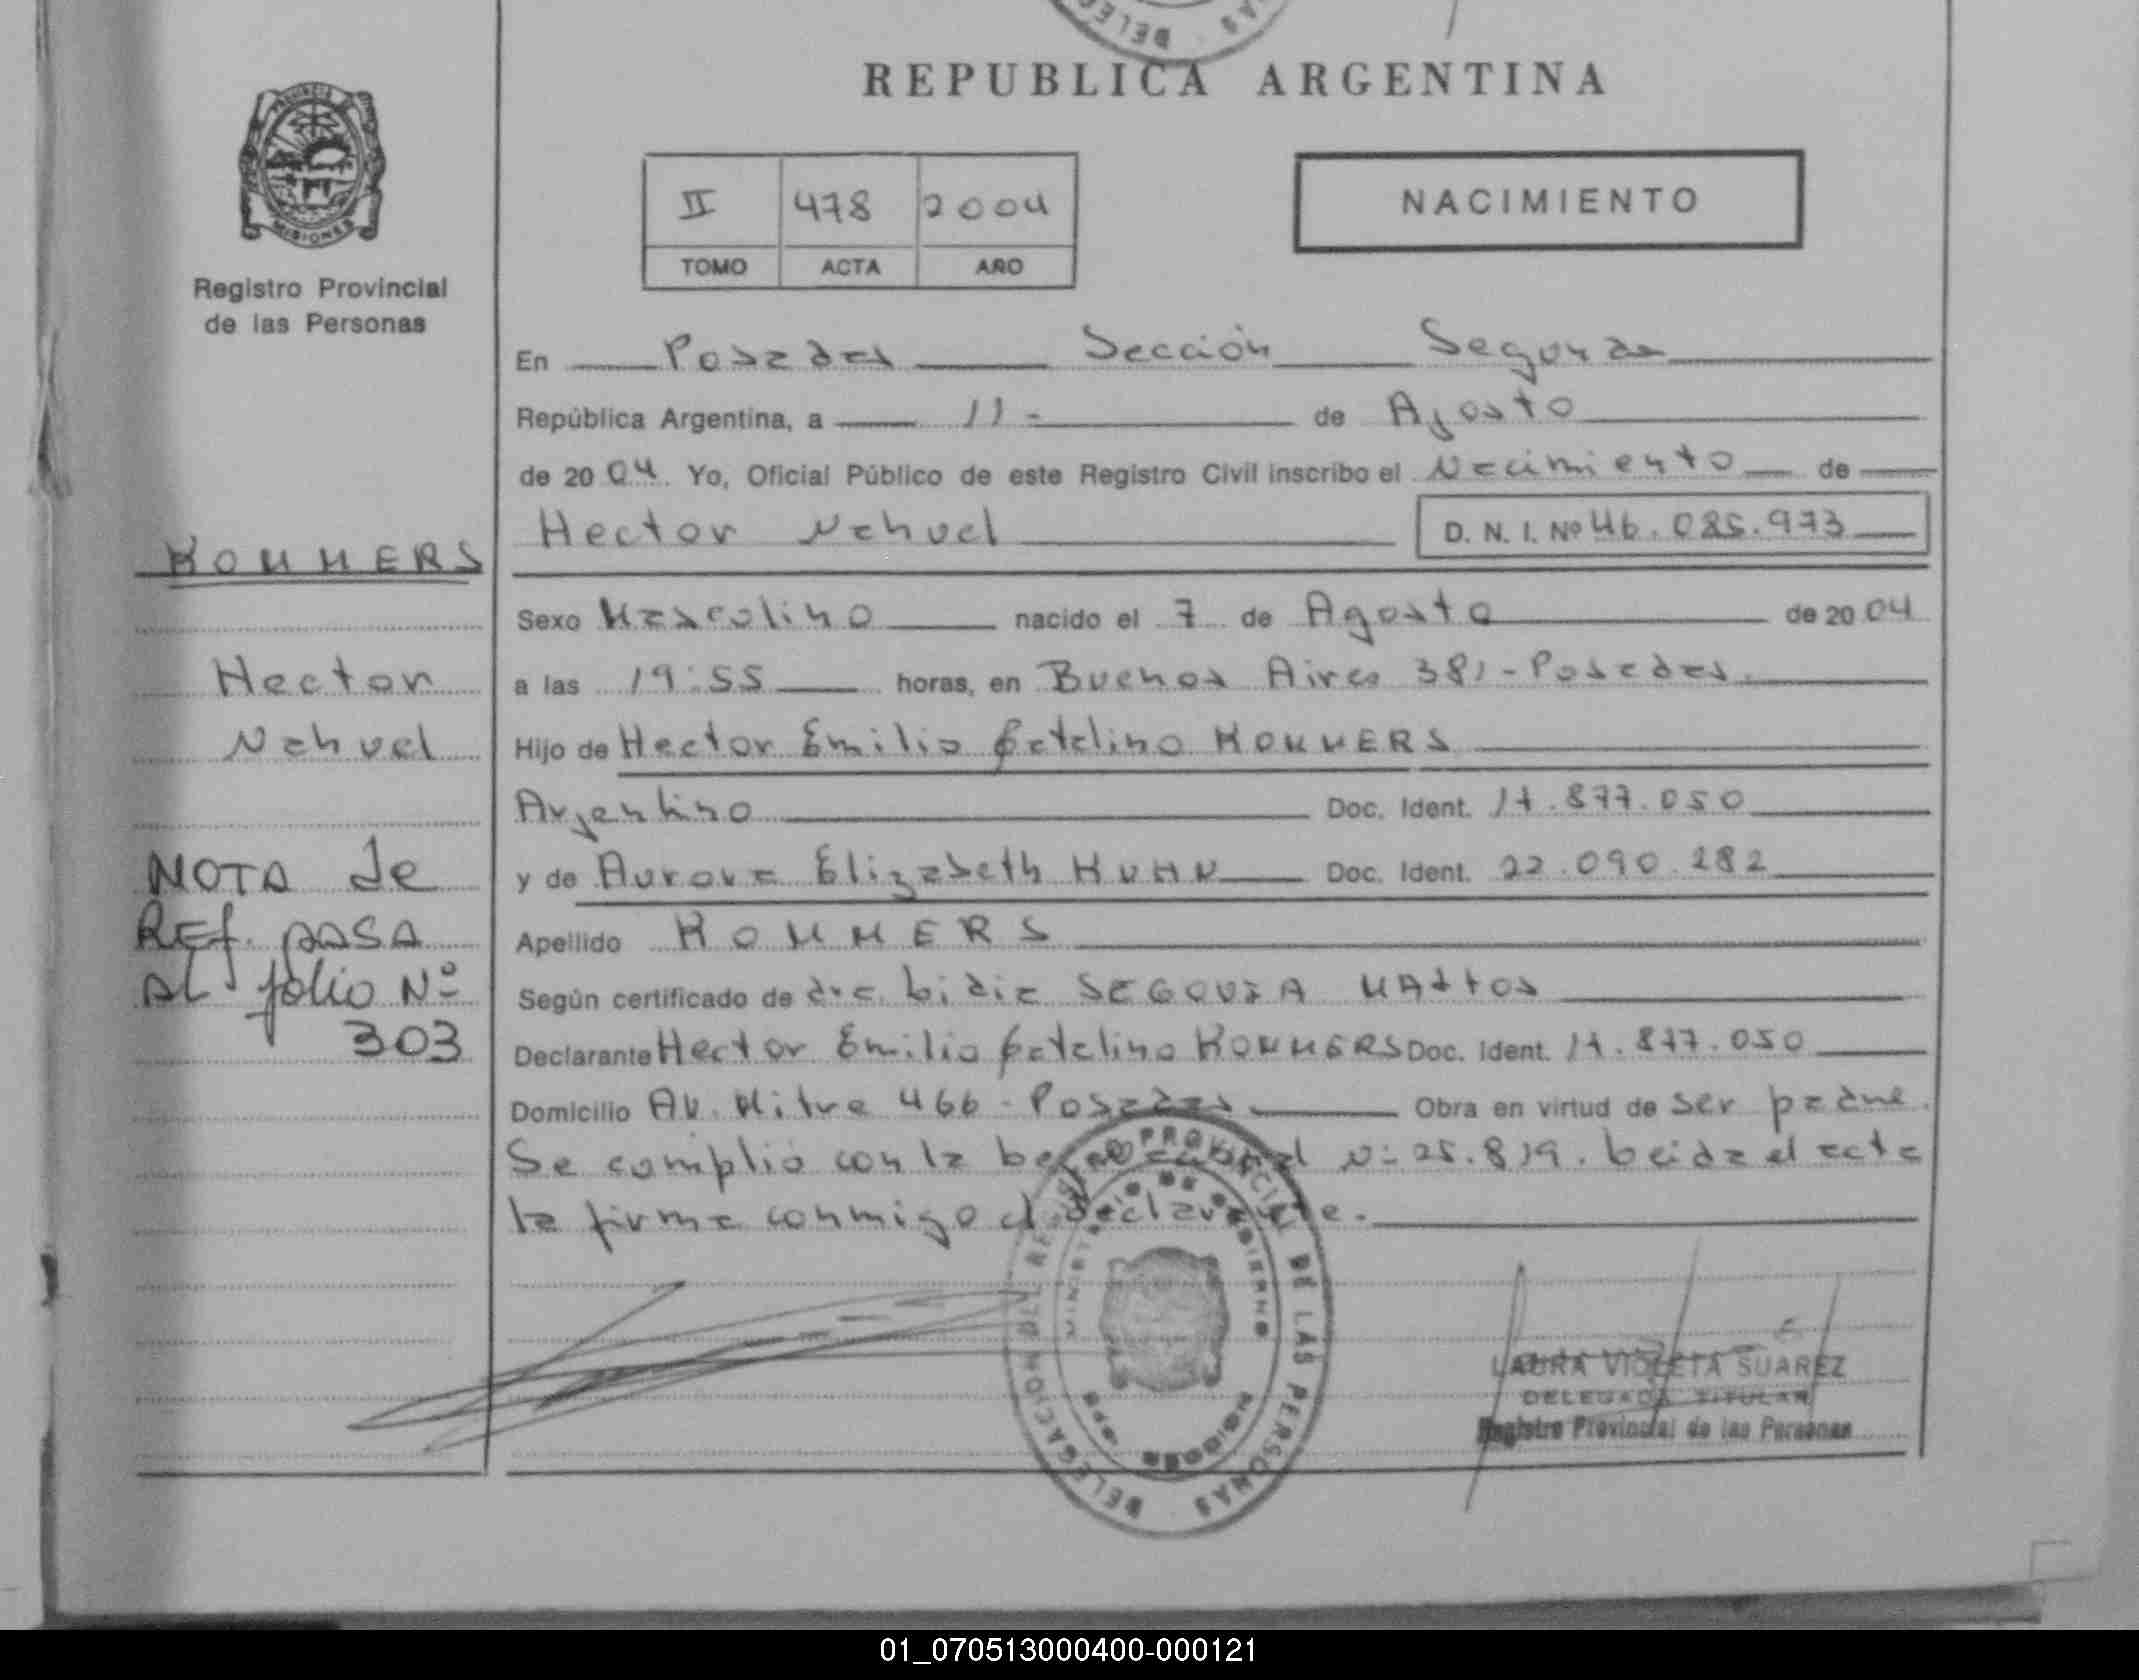 REPUBLICA ARGENTINA
MISIONES
Registro Provincial
de las Personas
II 478 2004
TOMO ACTA AÑO
NACIMIENTO
En Posadas Sección Segunda
República Argentina, a 11 - de Agosto
de 2004. Yo, Oficial Público de este Registro Civil inscribo el Nacimiento de
Hector Nahuel D. N. I. Nº 46.085.973
Sexo Masculino nacido el 7 de Agosto de 2004
a las 19:55 horas, en Buenos Aires 381 - Posadas.
Hijo de Hector Emilio Catalino KOMMERS
Argentino Doc. Ident. 17.877.050
y de Aurora Elizabeth KUHN Doc. Ident. 22.090.282
Apellido KOMMERS
Según certificado de dra. Lidia SEGOVIA MATTOS
Declarante Hector Emilio Catalino KOMMERS Doc. Ident. 17.877.050
Domicilio Av. Mitre 466 - Posadas Obra en virtud de ser padre.
Se cumplió con la Ley Nacional Nº 25.819. Leida el acta
la firma conmigo el declarante.
KOMMERS
Hector
Nahuel
NOTA de
REf. pASA
AL folio Nº
303
DELEGACION DEL REGISTRO PROVINCIAL DE LAS PERSONAS
MINISTERIO DE GOBIERNO
MISIONES
LAURA VIOLETA SUAREZ
DELEGADA TITULAR
Registro Provincial de las Personas
01_070513000400-000121